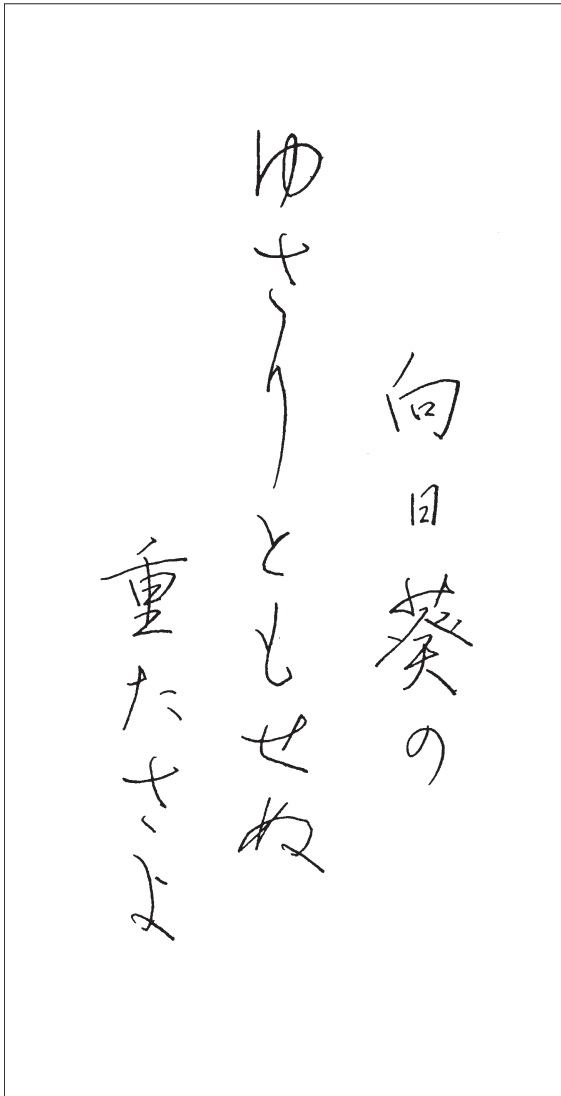 向日葵の
ゆさりともせぬ
重たさよ